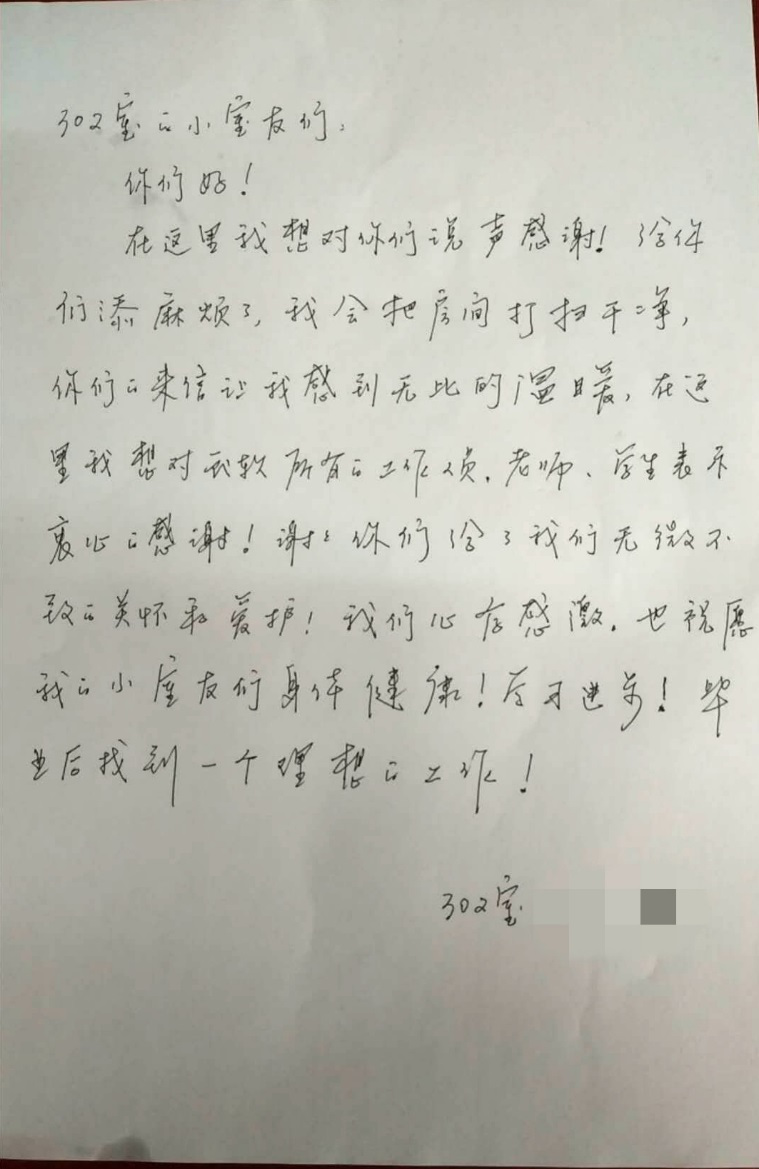 302室的小室友们:
你们好!
在这里我想对你们说声感谢! 给你
们添麻烦了, 我会把房间打扫干净,
你们的来信让我感到无比的温暖, 在这
里我想对武软所有的工作人员、老师、学生表示
衷心的感谢! 谢谢你们给了我们无微不
致的关怀和爱护! 我们心存感激. 也祝愿
我的小室友们身体健康! 学习进步! 毕
业后找到一个理想的工作!
302室